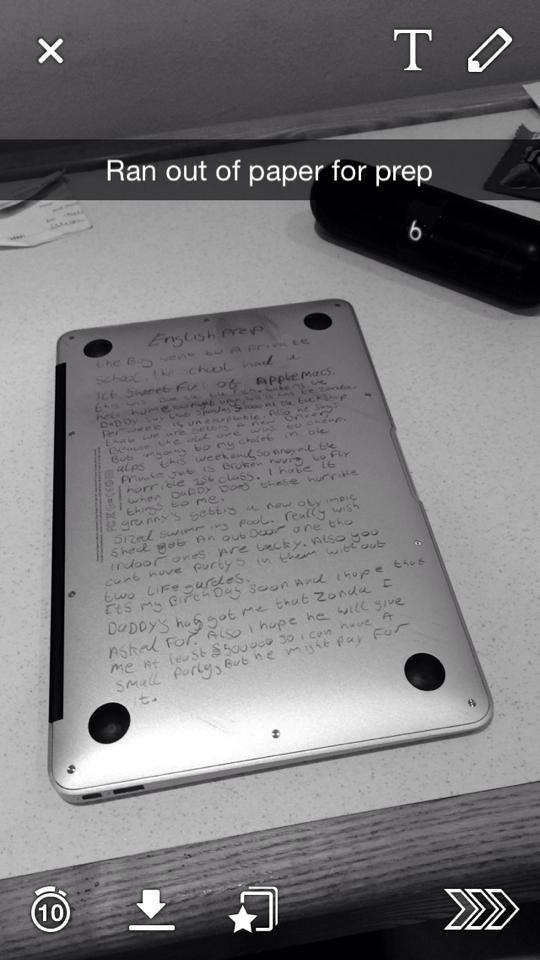 T
Ran out of paper for prep
b
English Prep
the Boy went to A Private
School. The school had a
ict Sweet Ful of AppleMacs.
this was
help home
DADDY say that
Per week is unexeptable. Also he says
that we are getting a new Driver
Because the old one was to cheap.
But ingoing to my chalet in the
alps this weekend, So Anoyed the
Private jet is Broken having to Fly
horrible 1st class. I hate it
when DaDDy Does these horrible
things to me.
granny's getting a new olympic
Sized swimming Pool. really wish
Shed got An outDoor one the
indoor ones Are tacky. Also you
cant have Party's in them without
two Life gardes.
Its my BirthDay Soon And i hope that
DaDDy's has got me that Zonda I
Asked For. Also I hope he will give
me At least $500000 So i can have A
Small Party, But he might pay For
it.
10